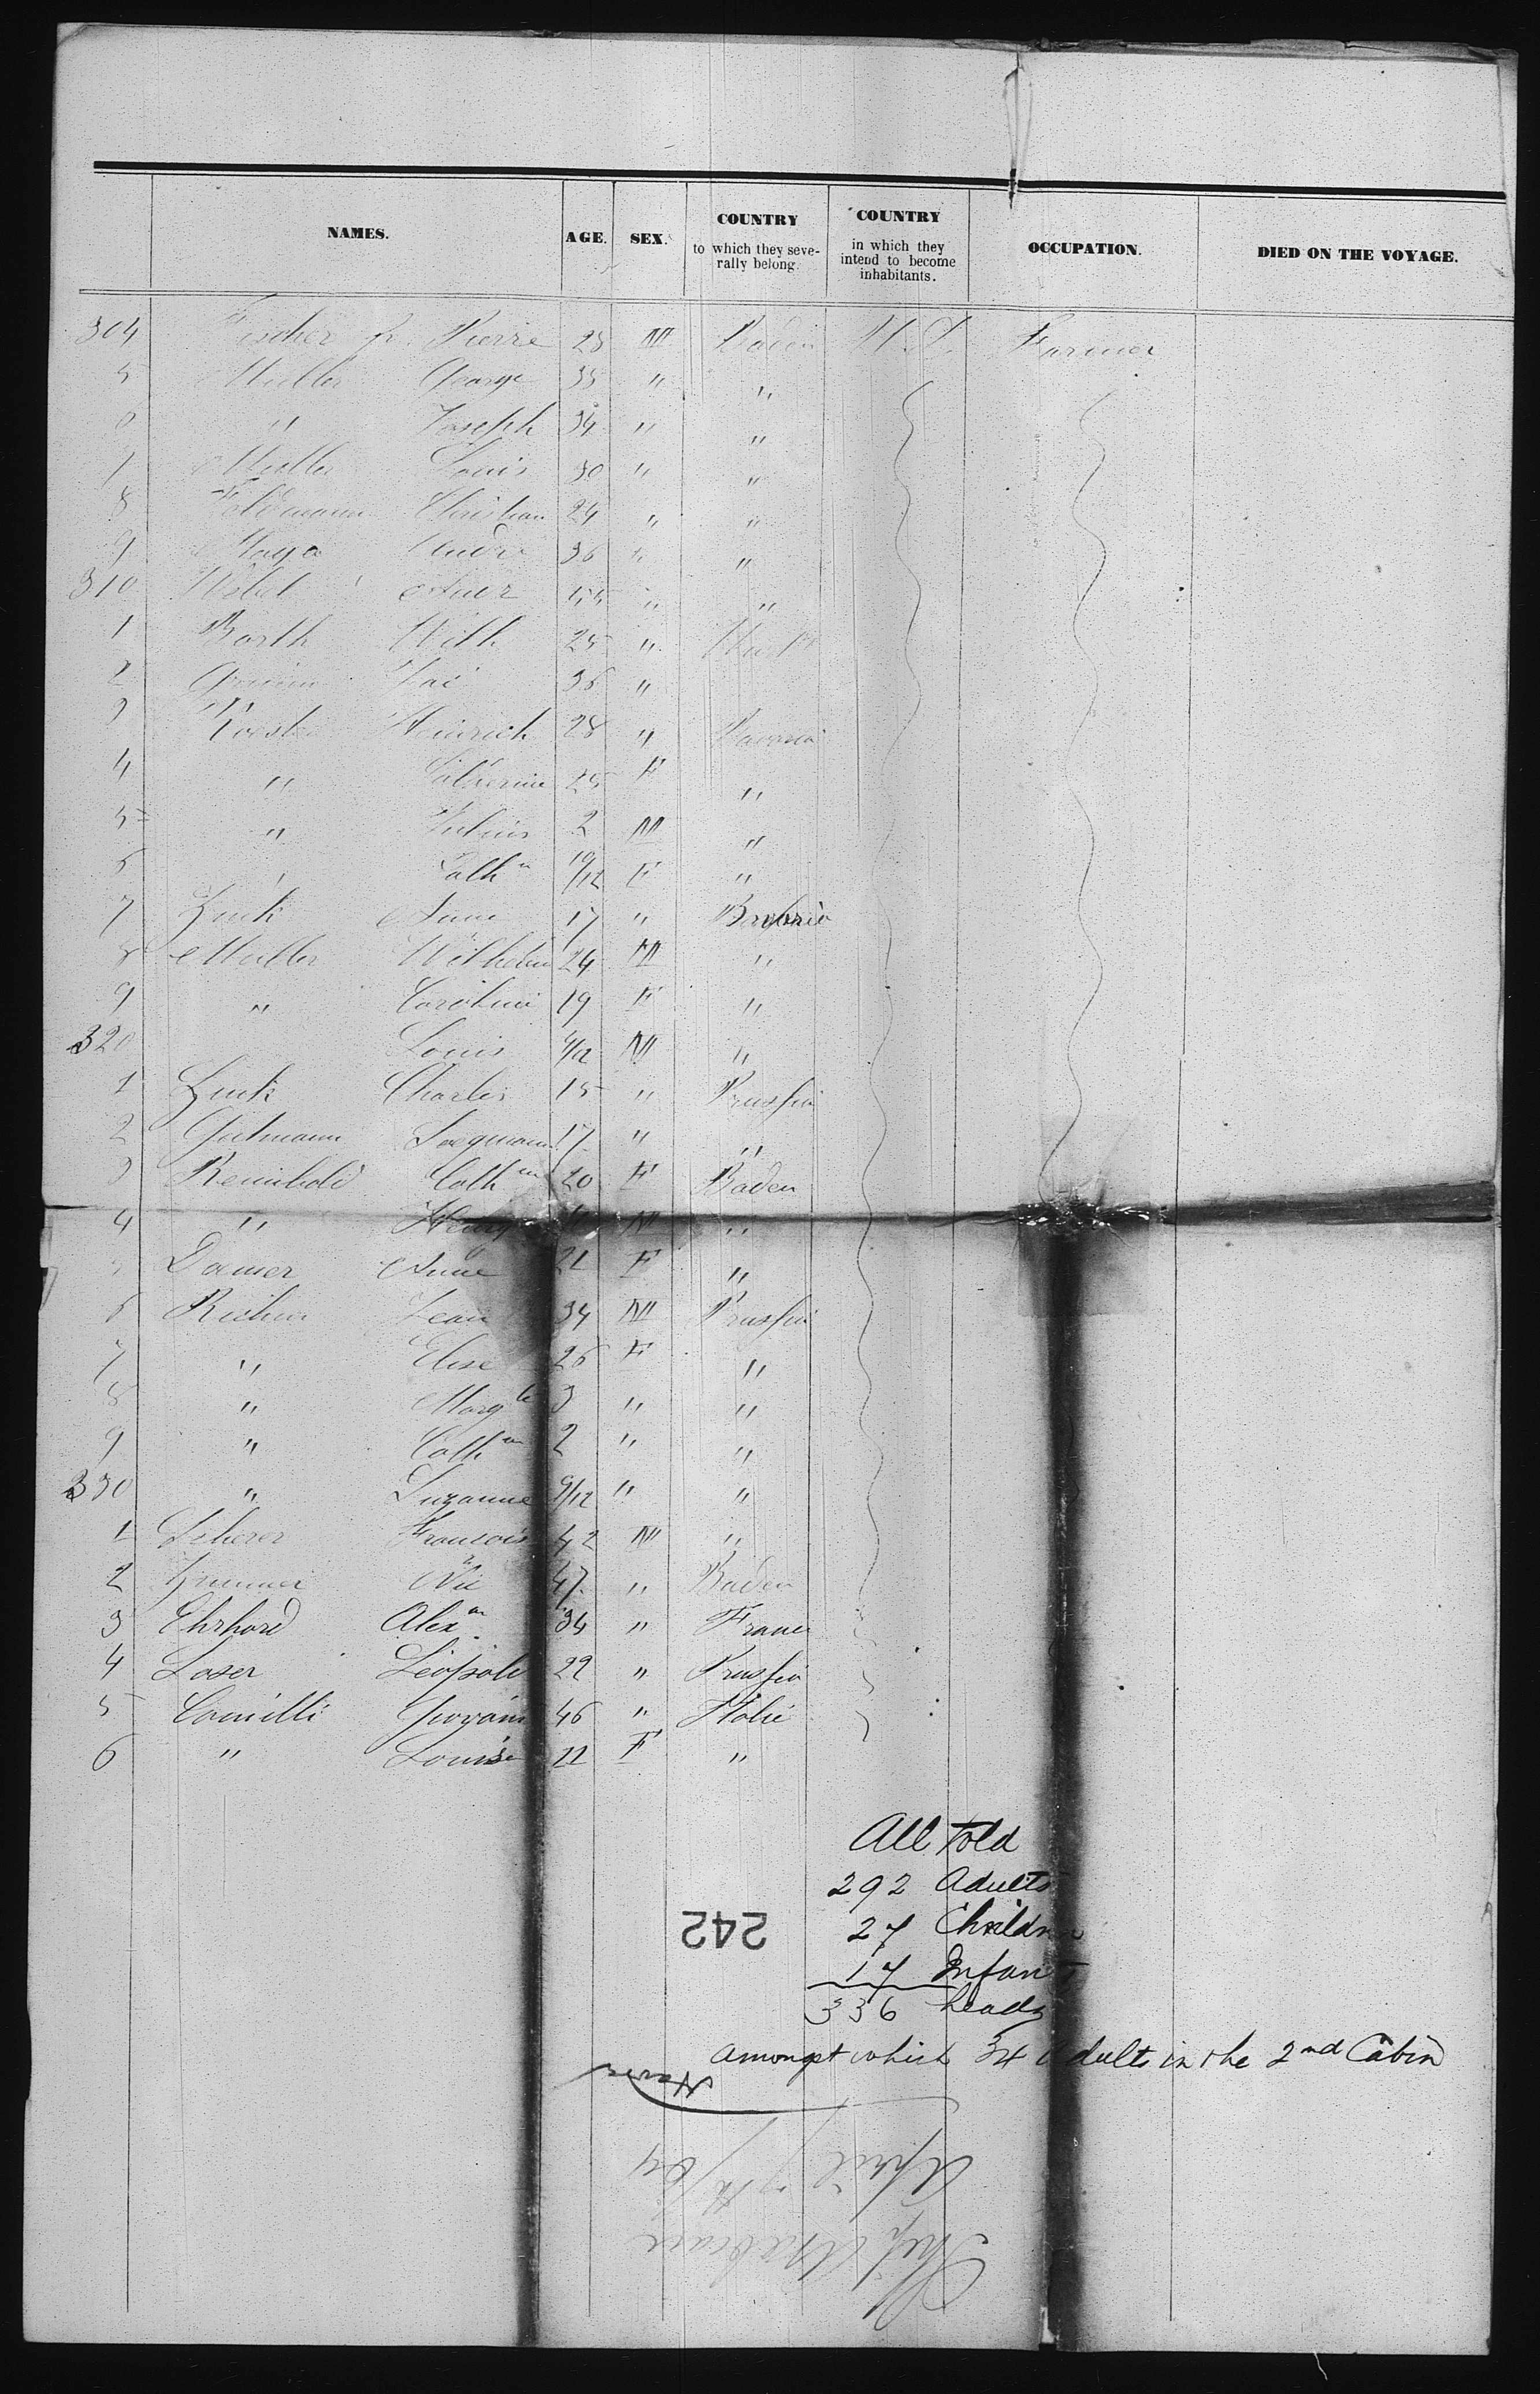 NAMES. AGE. SEX. COUNTRY to which they severally belong. COUNTRY in which they intend to become inhabitants. OCCUPATION. DIED ON THE VOYAGE.
304 Fischer Pierre 25 M Baden U.S. Farmer
5 Muller George 35 " "
6 " Joseph 34 " "
7 Muller Louis 30 " "
8 Feldmann Christian 24 " "
9 Andre 36 " "
310 " "
1 Barth Wilh 25 "
2 36 "
3 Heinrich 28 " Bavaria
4 " Catherine 25 F "
5 " Julius 2 M "
6 " Cathn 10/12 F "
7 Zink Anne 17 " Bavaria
8 Muller Wilhelm 24 M "
9 " Caroline 19 F "
320 Louis M "
1 Zink Charles 15 " Prussia
2 Gutmann 17 " "
3 Reinbold Cathne 20 F Baden
4 " Henry M "
5 Danner Anne 21 F "
6 Jean 34 M Prussia
7 " Elise 26 F "
8 " Margte 3 " "
9 " Cathne 2 " "
330 " Suzanne 9/12 " "
1 Scherer Francois 42 M "
2 47 " Baden
3 Ehrhard Alex 34 " France
4 Loser Leopold 22 " Prussia
5 Camilli Giovani 46 " Italie
6 " Louise 22 F "
All told
292 Adults
27 Children
17 Infants
336 heads
amongst which 34 adults in the 2nd Cabin
242
Havre
April 7th/64
Ship